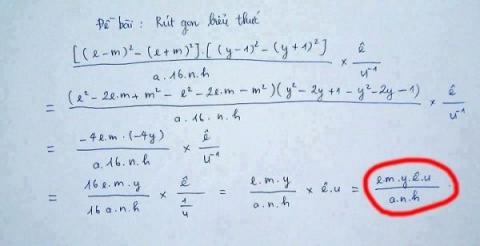 Đề bài: Rút gọn biểu thức
[(e-m)² - (e+m)²].[(y-1)² - (y+1)²] / a.16.n.h × ê / u⁻¹
= (e² - 2e.m + m² - e² - 2e.m - m²)(y² - 2y + 1 - y² - 2y - 1) / a.16.n.h × ê / u⁻¹
= -4e.m.(-4y) / a.16.n.h × ê / u⁻¹
= 16e.m.y / 16a.n.h × ê / (1/u) = e.m.y / a.n.h × ê.u = e.m.y.ê.u / a.n.h